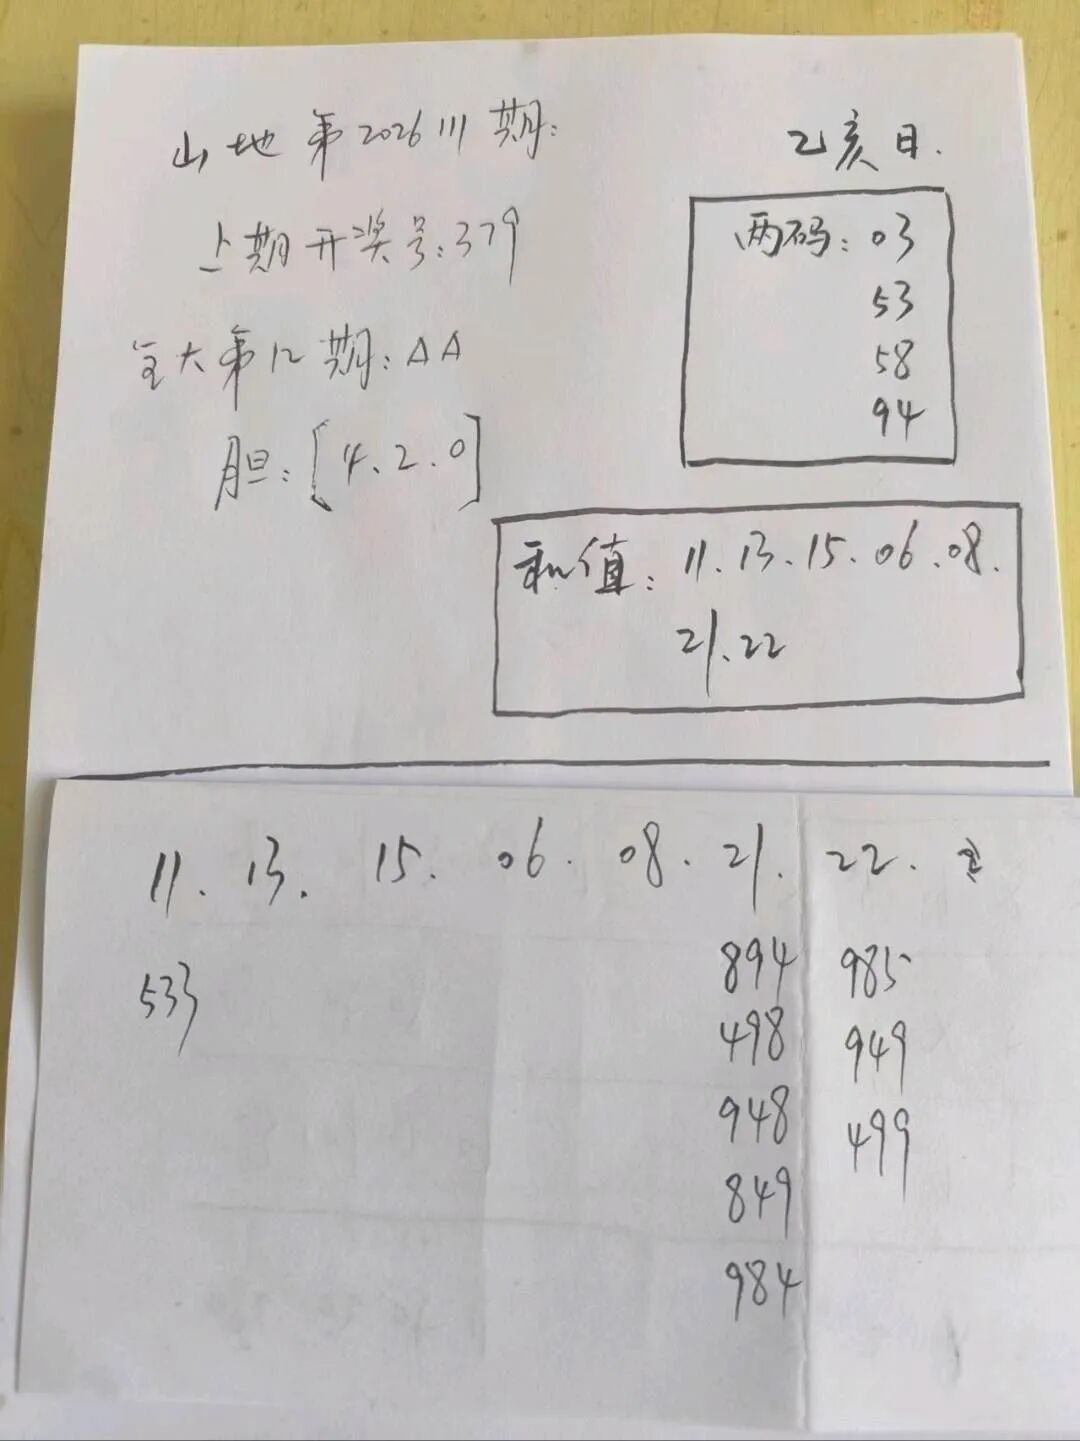 山地第2026111期:
乙亥日.
上期开奖号:379
两码:03
53
58
94
全大第12期:△△
胆:[4.2.0]
和值:11.13.15.06.08.
21.22
11. 13. 15. 06. 08. 21. 22.
533
894 985
498 949
948 499
849
984